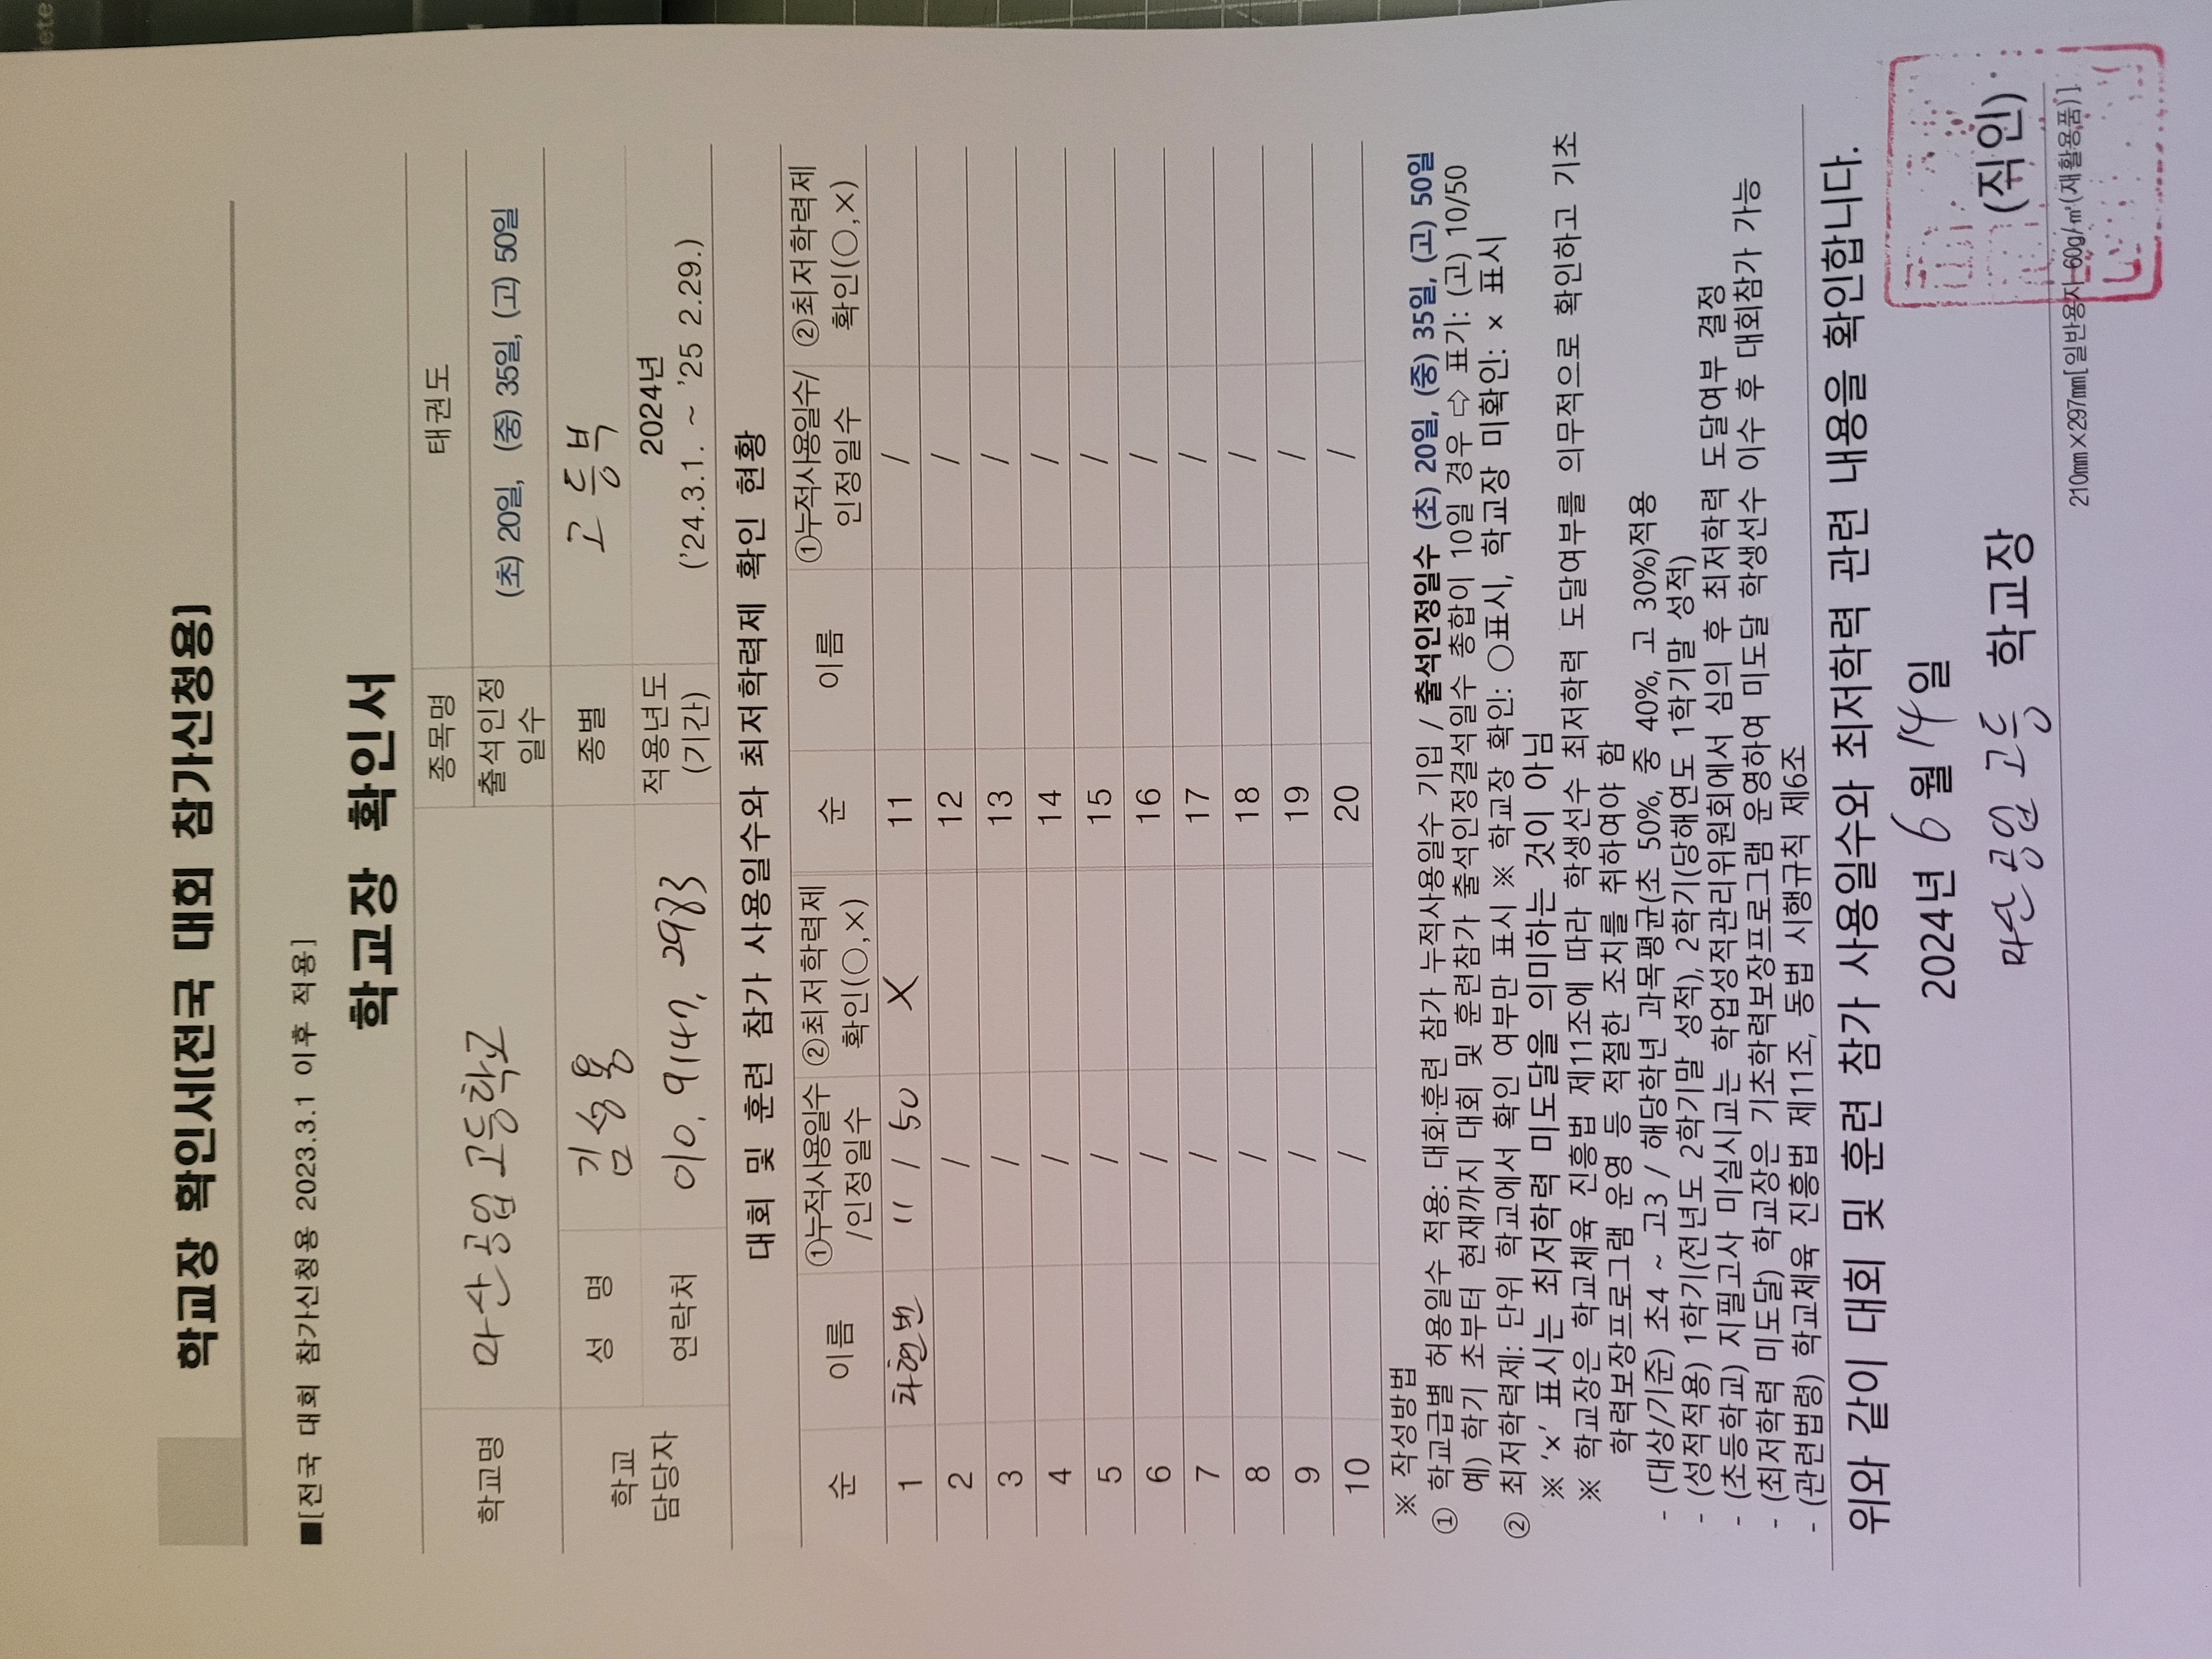 학교장 확인서[전국 대회 참가신청용]
■[전국 대회 참가신청용 2023.3.1 이후 적용]
학교장 확인서
학교명 마산공업고등학교 종목명 태권도
출석인정일수 (초) 20일, (중) 35일, (고) 50일
학교 담당자 성 명 김 종별 고등부
연락처 010, 9147, 2983 적용년도(기간) 2024년 ('24.3.1. ~ '25 2.29.)
대회 및 훈련 참가 사용일수와 최저학력제 확인 현황
순 이름 ①누적사용일수/인정일수 ②최저학력제 확인(○,×) 순 이름 ①누적사용일수/인정일수 ②최저학력제 확인(○,×)
1 차현빈 11 / 50 X 11 /
2 / 12 /
3 / 13 /
4 / 14 /
5 / 15 /
6 / 16 /
7 / 17 /
8 / 18 /
9 / 19 /
10 / 20 /
※ 작성방법
① 학교급별 허용일수 적용: 대회·훈련 참가 누적사용일수 기입 / 출석인정일수 (초) 20일, (중) 35일, (고) 50일
예) 학기 초부터 현재까지 대회 및 훈련참가 출석인정결석일수 총합이 10일 경우 ⇨ 표기: (고) 10/50
② 최저학력제: 단위 학교에서 확인 여부만 표시 ※ 학교장 확인: ○표시, 학교장 미확인: × 표시
※ '×' 표시는 최저학력 미도달을 의미하는 것이 아님
※ 학교장은 학교체육 진흥법 제11조에 따라 학생선수 최저학력 도달여부를 의무적으로 확인하고 기초
학력보장프로그램 운영 등 적절한 조치를 취하여야 함
- (대상/기준) 초4 ~ 고3 / 해당학년 과목평균(초 50%, 중 40%, 고 30%)적용
- (성적적용) 1학기(전년도 2학기말 성적), 2학기(당해연도 1학기말 성적)
- (초등학교) 지필고사 미실시교는 학업성적관리위원회에서 심의 후 최저학력 도달여부 결정
- (최저학력 미도달) 학교장은 기초학력보장프로그램 운영하여 미도달 학생선수 이수 후 대회참가 가능
- (관련법령) 학교체육 진흥법 제11조, 동법 시행규칙 제6조
위와 같이 대회 및 훈련 참가 사용일수와 최저학력 관련 내용을 확인합니다.
2024년 6월 14일
마산공업고등 학교장 (직인)
210㎜×297㎜[일반용지 60g/㎡(재활용품)]